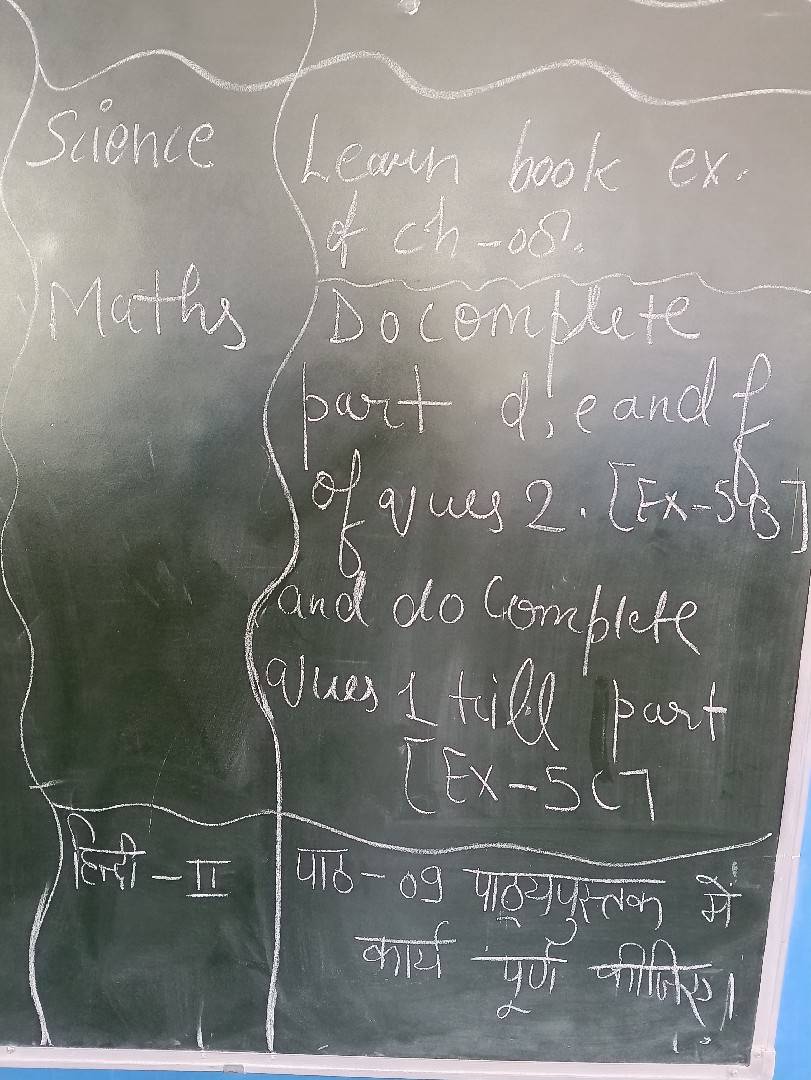 Science
Learn book ex.
of ch-08.
Maths
Do complete
part d, e and f
of ques 2. [Ex-5B]
and do complete
ques 1 till part
[Ex-5C]
हिन्दी - II
पाठ - 09 पाठ्यपुस्तक में
कार्य पूर्ण कीजिए।